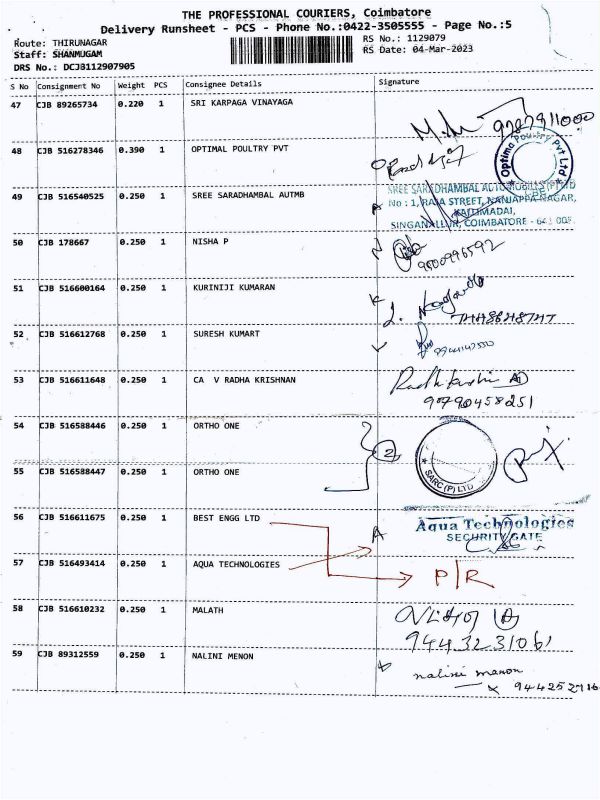 THE PROFESSIONAL COURIERS, Coimbatore
Delivery Runsheet - PCS - Phone No.:0422-3505555 - Page No.:5
Route: THIRUNAGAR
RS No.: 1129079
Staff: SHANMUGAM
RS Date: 04-Mar-2023
DRS No.: DCJB112907905
S No Consignment No Weight PCS Consignee Details Signature
47 CJB 89265734 0.220 1 SRI KARPAGA VINAYAGA
48 CJB 516278346 0.390 1 OPTIMAL POULTRY PVT
Optima Poultry Pvt Ltd
CBE
49 CJB 516540525 0.250 1 SREE SARADHAMBAL AUTMB
SREE SARADHAMBAL AUTOMOBILES (P) LTD
No : 1, RAJA STREET, NANJAPPA NAGAR,
SINGANALLUR, COIMBATORE - 641 005.
50 CJB 178667 0.250 1 NISHA P
9500996592
51 CJB 516600164 0.250 1 KURINIJI KUMARAN
52 CJB 516612768 0.250 1 SURESH KUMART
53 CJB 516611648 0.250 1 CA V RADHA KRISHNAN
9790458251
54 CJB 516588446 0.250 1 ORTHO ONE
2
SARC (P) LTD
55 CJB 516588447 0.250 1 ORTHO ONE
56 CJB 516611675 0.250 1 BEST ENGG LTD
A
Aqua Technologies
SECURITY GATE
57 CJB 516493414 0.250 1 AQUA TECHNOLOGIES
P/R
58 CJB 516610232 0.250 1 MALATH
9443231061
59 CJB 89312559 0.250 1 NALINI MENON
nalini menon